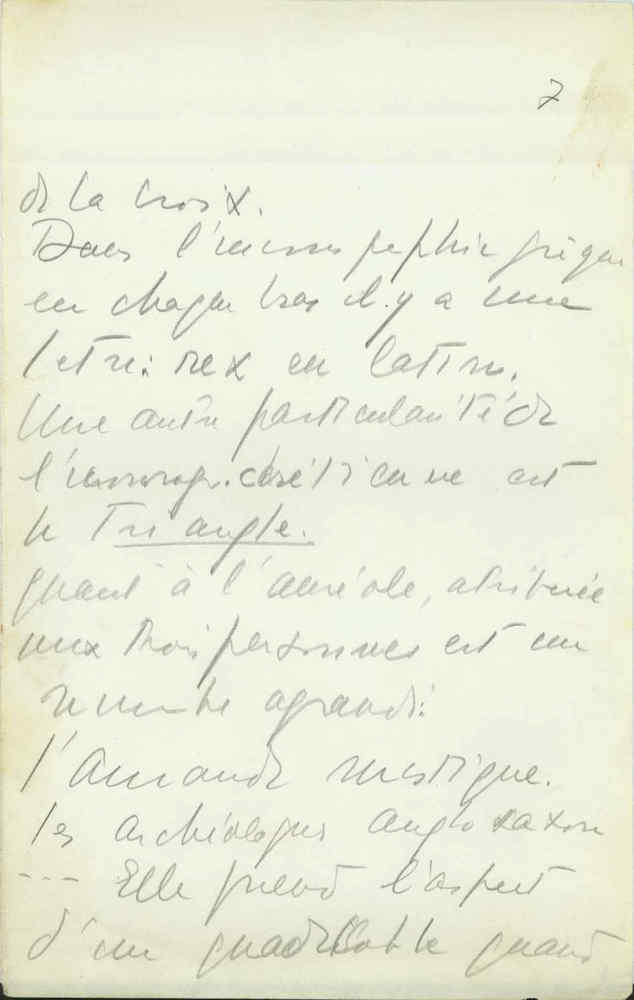 7
de la croix.
Dans l'iconographie grèque
en chaque bras il y a une
lettre: rex en latin.
Une autre particularité de
l'iconogr. chrétienne est
le Triangle.
quant à l'auréole, attribuée
aux trois personnes est un
nimbe agrandi:
l'Amande mystique.
les archéologues anglo saxon
--- Elle prend l'aspect
d'un quadrilobe quand